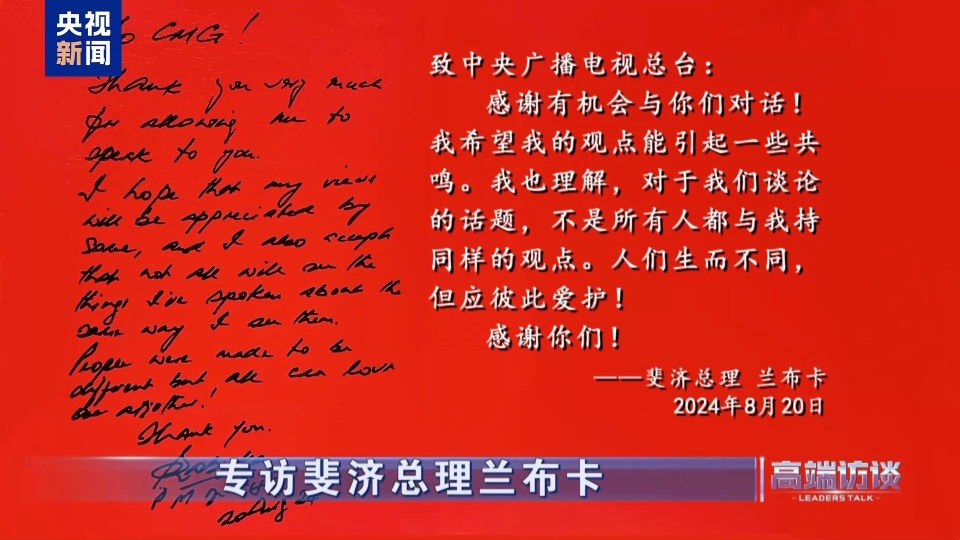 央视
新闻
To CMG!
Thank you very much
for allowing me to
speak to you.
I hope that my views
will be appreciated by
some, and I also accept
that not all will see the
things I've spoken about the
same way I see them.
People were made to be
different but all can love
one another!
Thank you.
PM
20 Aug 24
致中央广播电视总台：
感谢有机会与你们对话！
我希望我的观点能引起一些共
鸣。我也理解，对于我们谈论
的话题，不是所有人都与我持
同样的观点。人们生而不同，
但应彼此爱护！
感谢你们！
——斐济总理 兰布卡
2024年8月20日
专访斐济总理兰布卡
高端访谈
LEADERS TALK